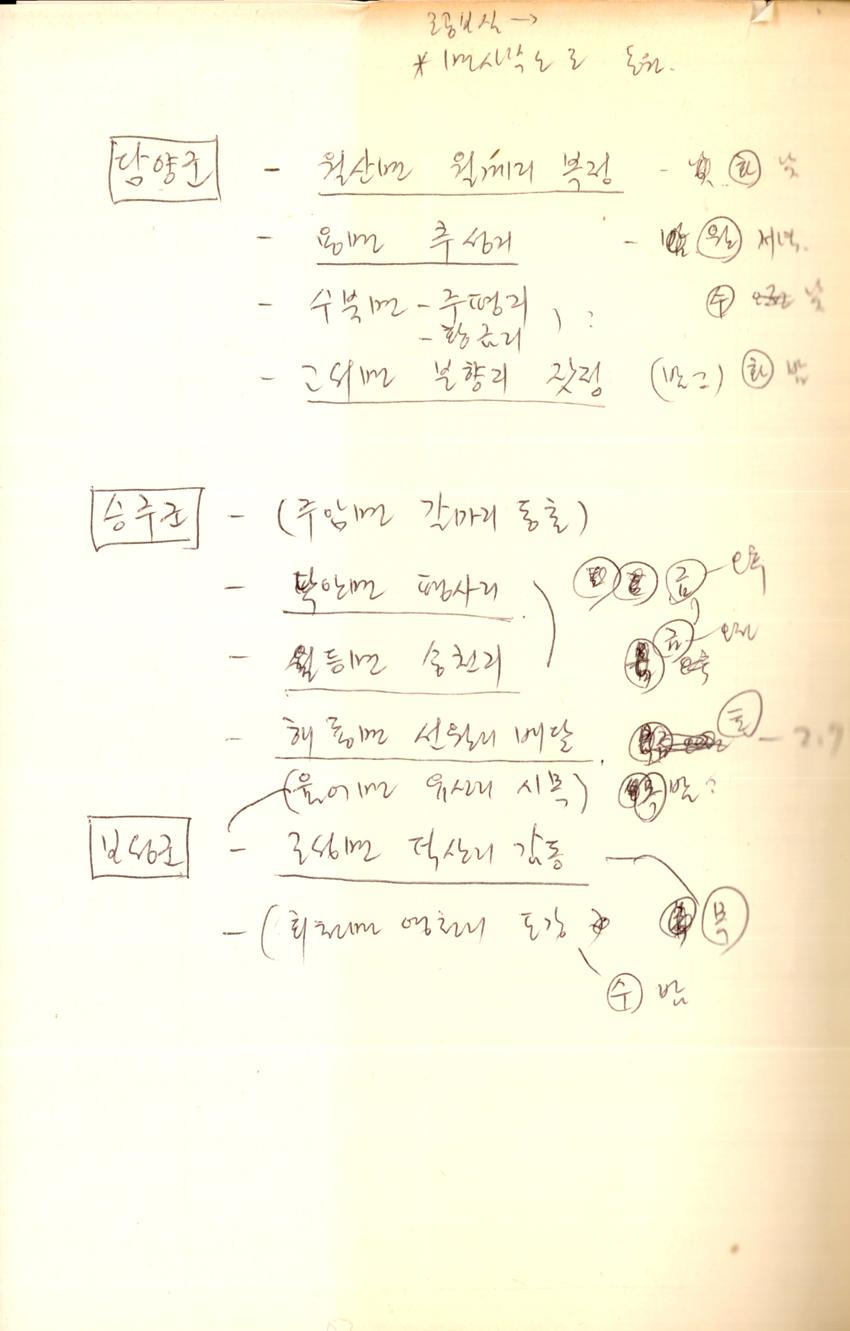 담양군 - 월산면 월계리 복정 - 화 낮
- 용면 추성리 - 월 저녁.
- 수북면 - 주평리 수 낮
- 황금리 ) ?
- 고서면 분향리 잣정 (반그) 화 밤
승주군 - (주암면 갈마리 동촌)
- 낙안면 평사리 금 오후
- 월등면 송천리 금 오전
- 해룡면 선월리 배달 토
(율어면 유신리 시목) 밤?
보성군 - 조성면 덕산리 감동 목
- (회천면 영천리 도강
수 밤